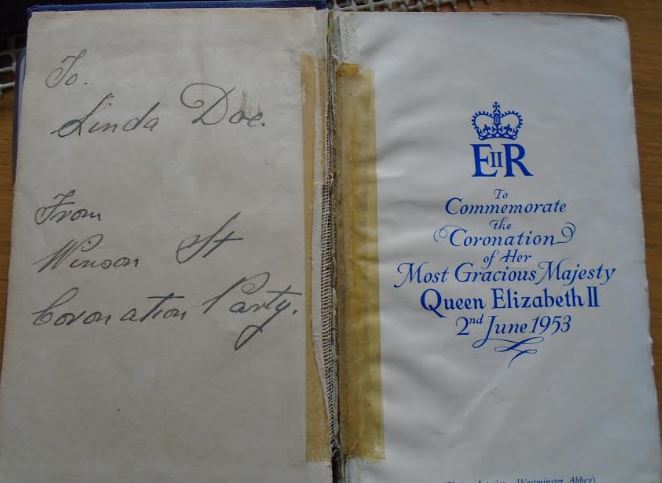 To.
Linda Doe.
From
Winson St
Coronation Party.
EIIR
To
Commemorate
the
Coronation
of Her
Most Gracious Majesty
Queen Elizabeth II
2nd June 1953
Westminster Abbey)